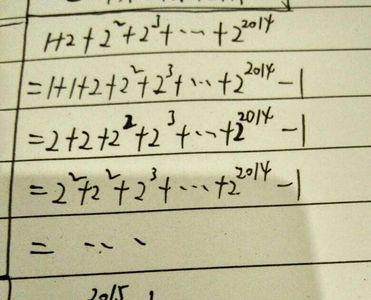 1+2+2²+2³+⋯+2²⁰¹⁴
=1+1+2+2²+2³+⋯+2²⁰¹⁴-1
=2+2+2²+2³+⋯+2²⁰¹⁴-1
=2²+2²+2³+⋯+2²⁰¹⁴-1
= ⋯
2015